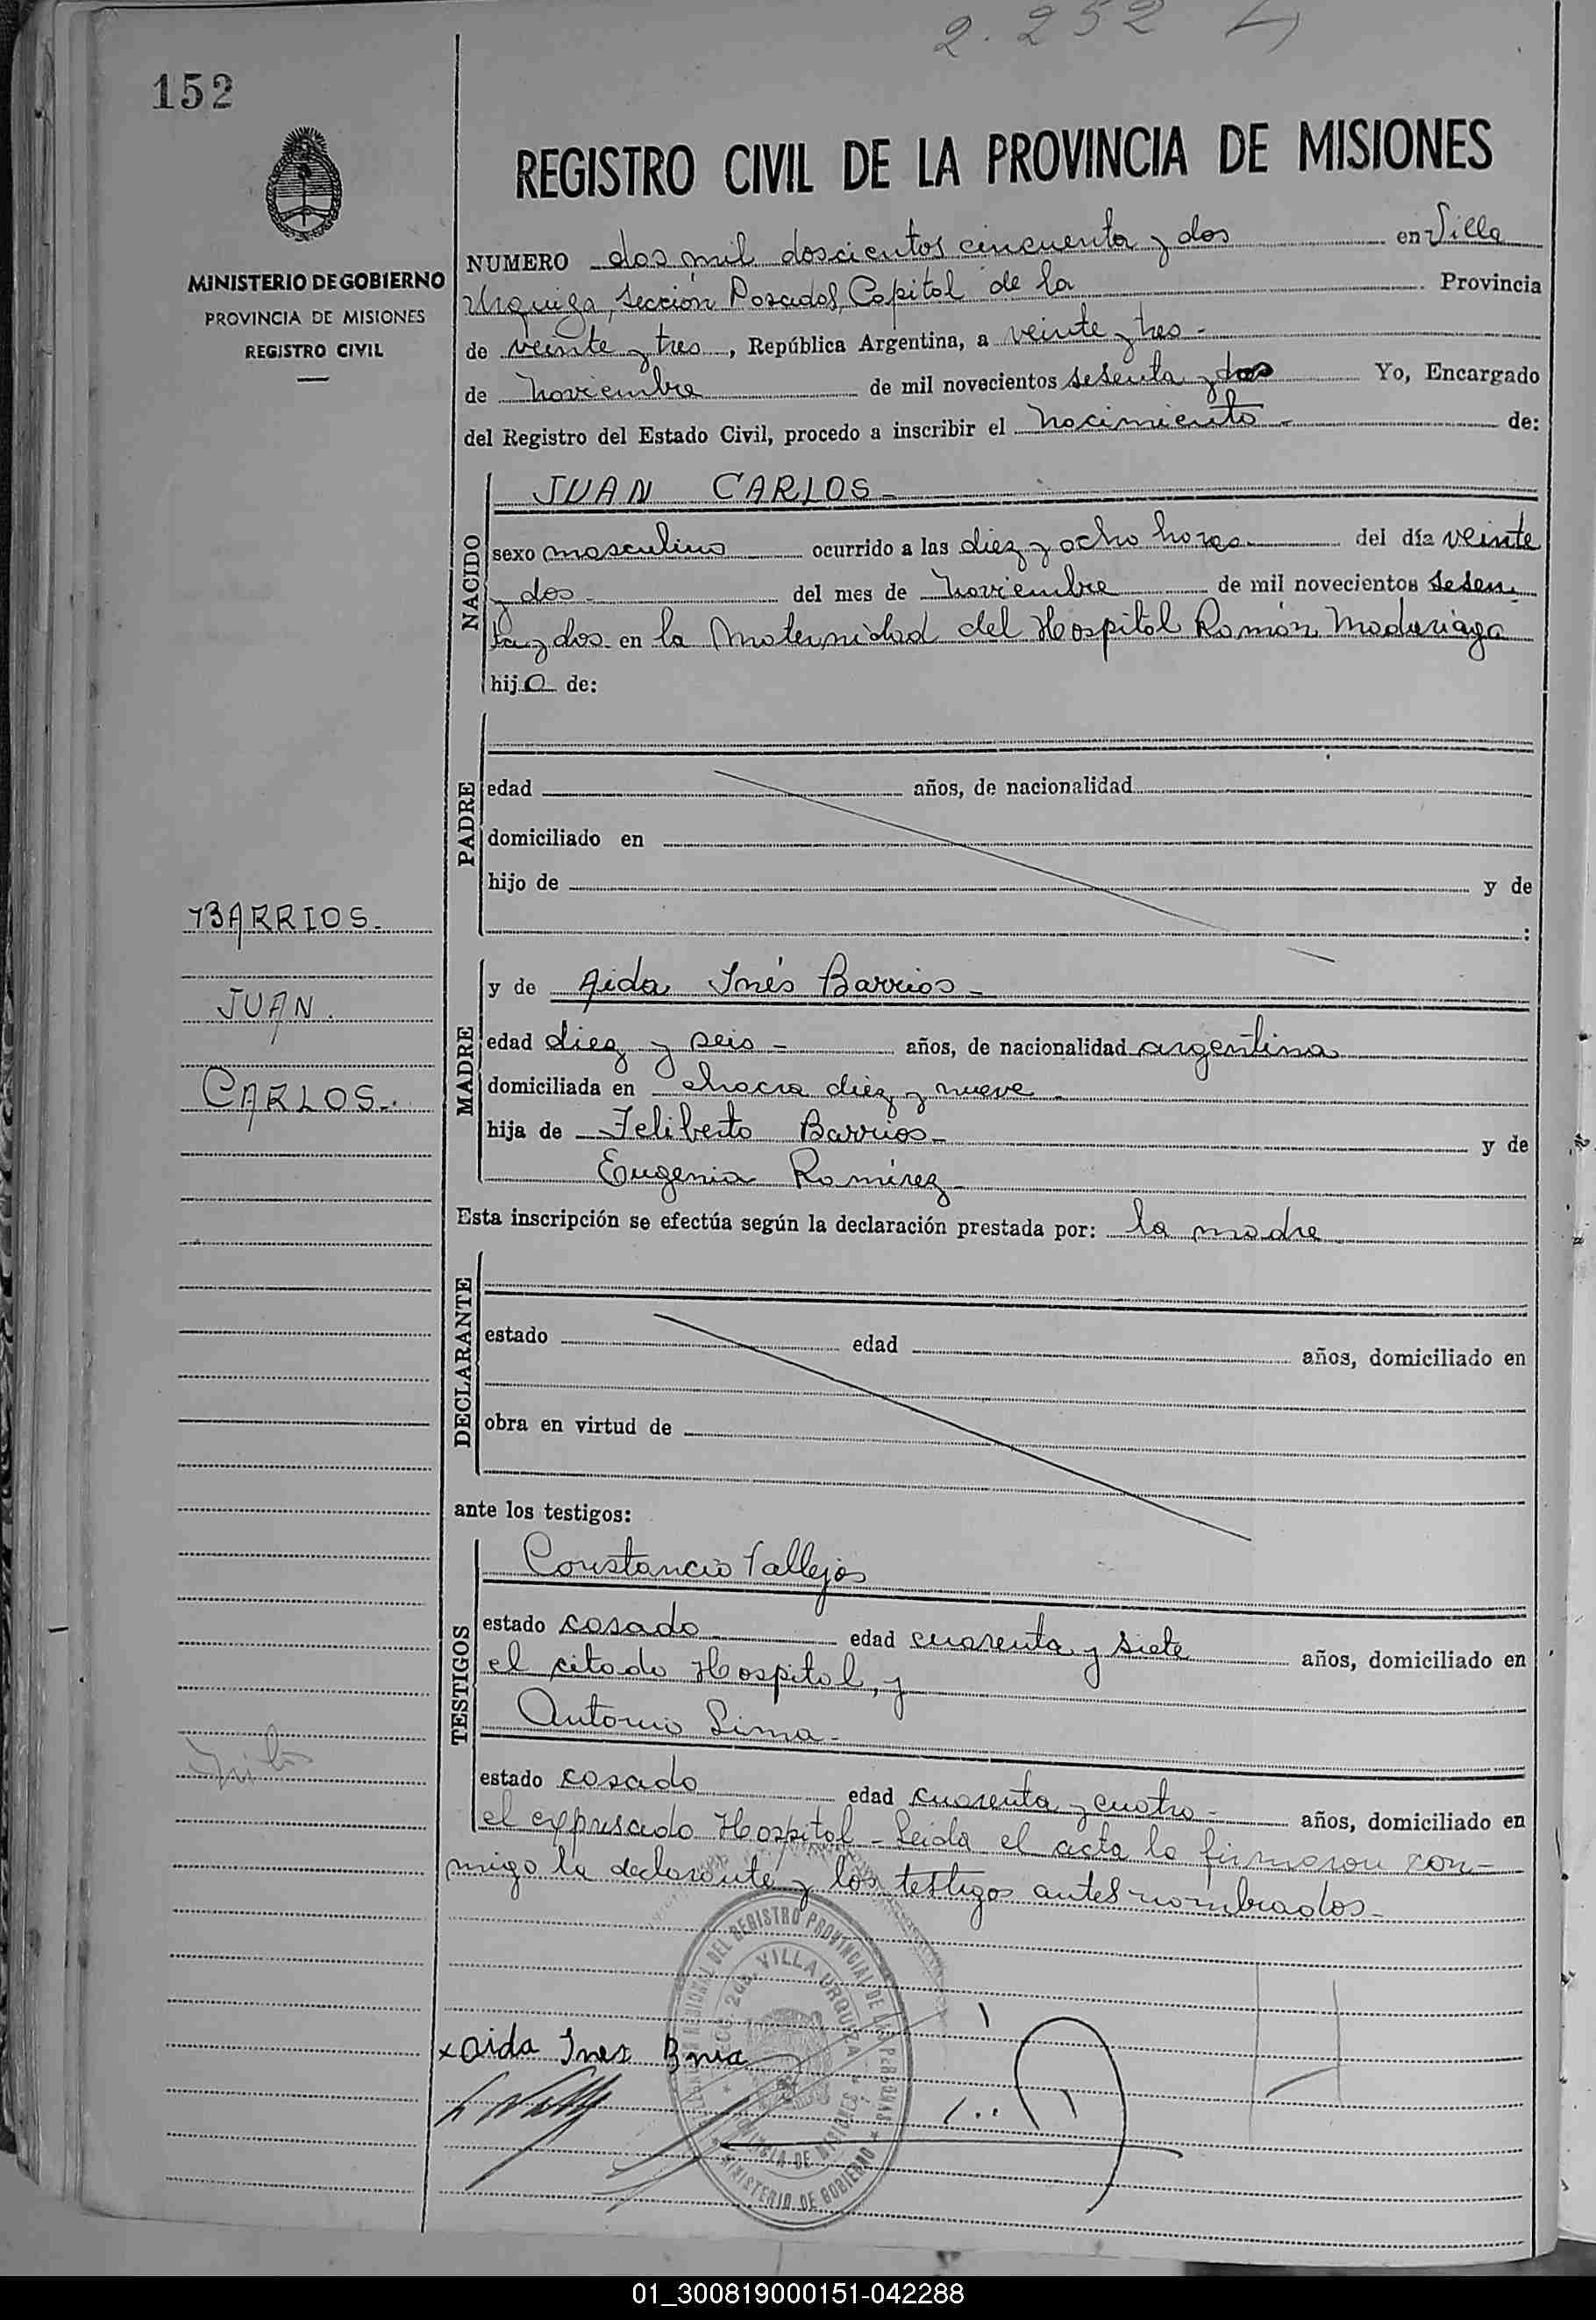 2.252
152
REGISTRO CIVIL DE LA PROVINCIA DE MISIONES
MINISTERIO DE GOBIERNO
PROVINCIA DE MISIONES
REGISTRO CIVIL
NUMERO dos mil doscientos cincuenta y dos en Villa
Urquiza, Sección Posadas, Capital de la Provincia
de veinte y tres, República Argentina, a veinte y tres-
de Noviembre de mil novecientos sesenta y dos Yo, Encargado
del Registro del Estado Civil, procedo a inscribir el Nacimiento- de:
NACIDO
JUAN CARLOS-
sexo masculino ocurrido a las diez y ocho horas del día veinte
y dos- del mes de Noviembre de mil novecientos sesen
ta y dos en la Maternidad del Hospital Ramón Madariaga
hijo de:
PADRE
edad años, de nacionalidad
domiciliado en
hijo de y de
:
BARRIOS-
JUAN.
CARLOS-.
MADRE
y de Aida Inés Barrios-
edad diez y seis- años, de nacionalidad argentina
domiciliada en chacra diez y nueve
hija de Feliberto Barrios- y de
Eugenia Ramírez-
Esta inscripción se efectúa según la declaración prestada por: la madre
DECLARANTE
estado edad años, domiciliado en
obra en virtud de
ante los testigos:
TESTIGOS
Constancio Vallejos
estado casado edad cuarenta y siete años, domiciliado en
el citado Hospital, y
Antonio Lima-
estado casado edad cuarenta y cuatro- años, domiciliado en
el expresado Hospital- Leida el acta la firmaron con-
migo la declarante y los testigos antes nombrados-
REGIONAL DEL REGISTRO PROVINCIAL DE LAS PERSONAS
VILLA URQUIZA
MISIONES
MINISTERIO DE GOBIERNO
x Aida Ines
01_300819000151-042288